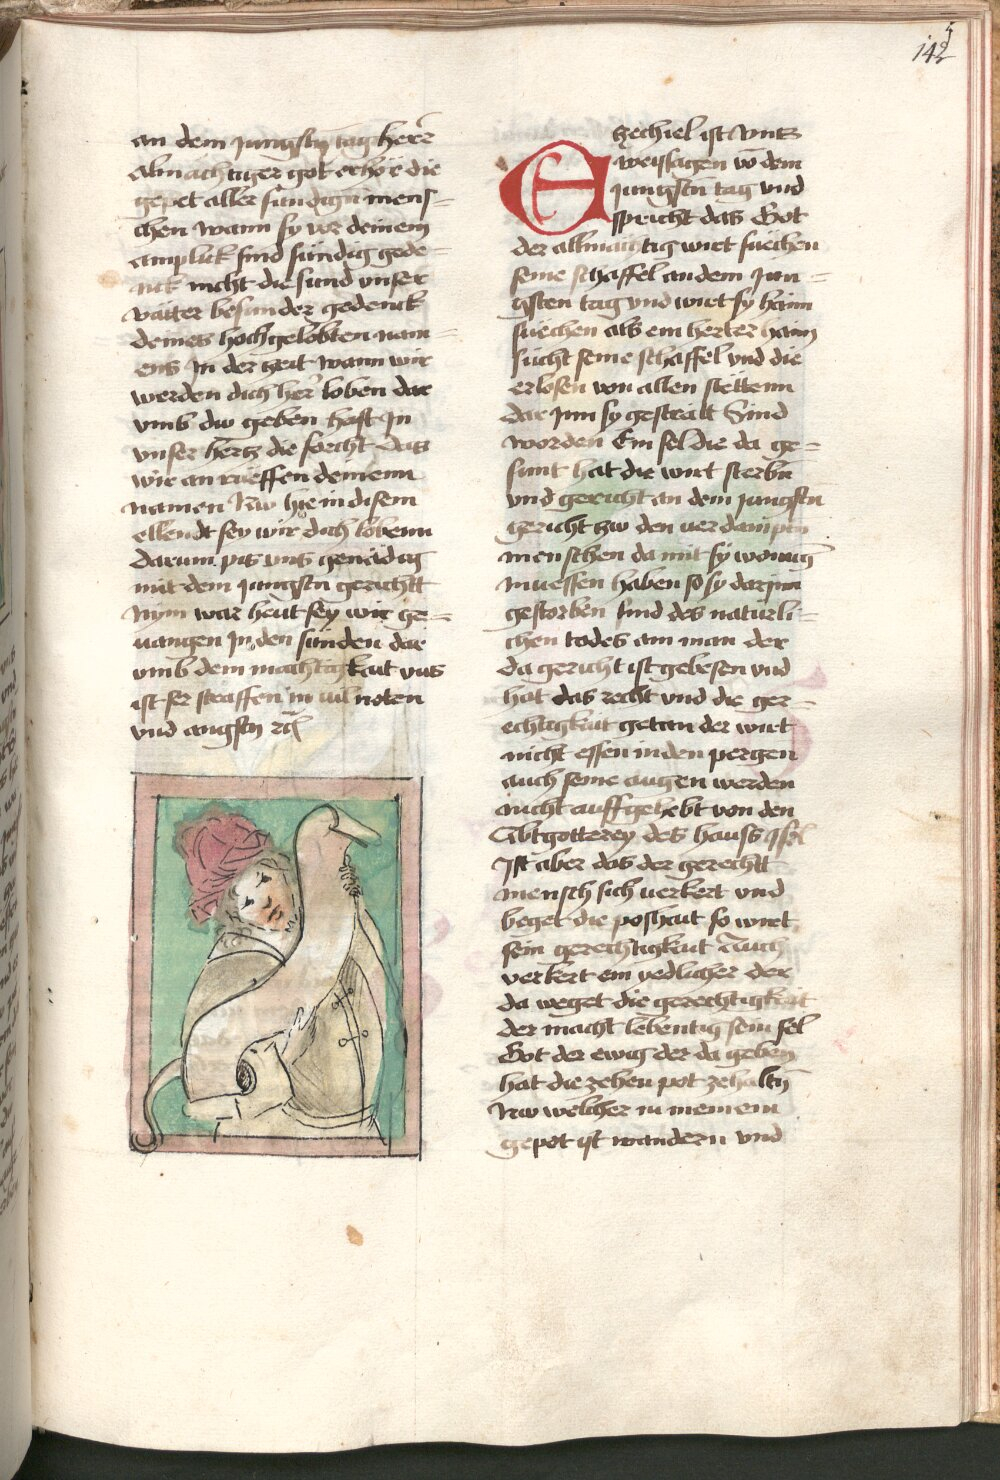 142
5
an dem jungsten tag herr
Almachtiger got erhör die
gepet aller sundign mens-
chen wann sy vor deinem
antpluk sind sündig gede-
nck nicht die sund unser
vätter besunder gedenck
deines hochgelobten nam-
ens In der zeit wann wir
werden dich her loben dar
umb dw geben hast In
unser hertz die forcht das
wir an rueffen deinem
namen Nw hie in disem
ellendt sey wir dich lobenn
darum pis uns genädig
mit dem jungstn gerichtt
Nym war heut sey wir ge-
uangen In den sünden dar
umb dem machtigkait uns
ist ser straffen in uil noten
und angstn rc
Ezechiel ist uns
weissagen vo dem
jungstn tag und
spricht das Got
der allmachtig wirt suechen
seine schaffel an dem Jun-
gsten tag und wirt sy haim
suechen als ein herter haim
sücht seine schaffel und die
erlosen von allen stettenn
dar Inn sy gestralt Sind
worden Ein sel die da ge-
sunt hat die wirt sterbn
und gericht an dem jungstn
gericht zw den uerdampten
menschen da mit sy wonung
muessen haben so sy darjnn
gestorben sind des naturli-
chen todes am man der
da gericht ist gebesen und
hat das recht und die ger-
echtigkait getan der wirt
nicht essen in den pergen
auch seine augen werden
nicht auffgehebt von den
Abtgotterey des hauss jsrl
Ist aber das der gerechtt
mensch sich uerkert und
beget die poshait so wirt
sein gerechtigkait auch
verkert ein yedlicher der
da weget die gerechtigkait
der macht lebentig sein sel
Got der ewig der da geben
hat die zehen pot zehaltn
Nw welcher in meinem
gepot ist wandern und